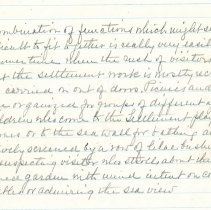 ombination of functions which might se
icult to fit together is really very easil
summer time when the rush of visitors
at the settlement work is mostly sc
carried on out of doors. Picnics and
are organized for groups of different a
ldren welcome to the Settlement pla
or to the sea wall for bathing an
screened by a row of lilac bush
suspecting visitor who strolls about the
ness garden with mind intent on co
or admiring the sea view